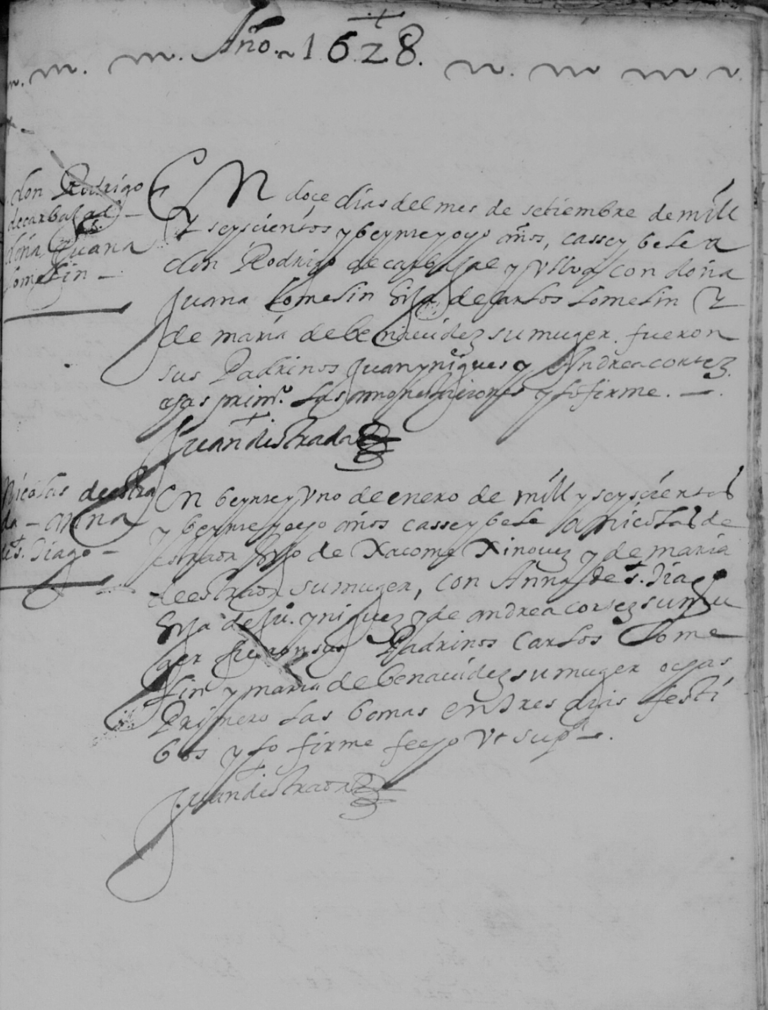 Año. 1628.
don Rodrigo
de carbajal
doña Juana
lomelin
En doçe dias del mes de setiembre de mill
y seyscientos y beynte y oyo años, casse y bele a
don Rodrigo de carbajal y Ulloa con doña
Juana lomelin hija de carlos lomelin y
de maria de benauidez su muger. fueron
sus Padrinos Juan yniques y Andrea cortez.
primo. las amonestaciones y lo firme.
Juan destrada
Nicolas de estra
da - Anna
de s. Diago
En beynte y Uno de enero de mill y seyscientos
y beynte y oyo años casse y bele a nicolas de
estrada hijo de Xacome Xinouez y de maria
de estrada su muger, con Anna de s. Diago
hija de Ju. yniquez y de andrea cortez su mu
ger fueron sus Padrinos Carlos lome
lin y maria de benauidez su muger
Primero las en tres dias festi
bos y lo firme feo Ut supa.
Juan destrada